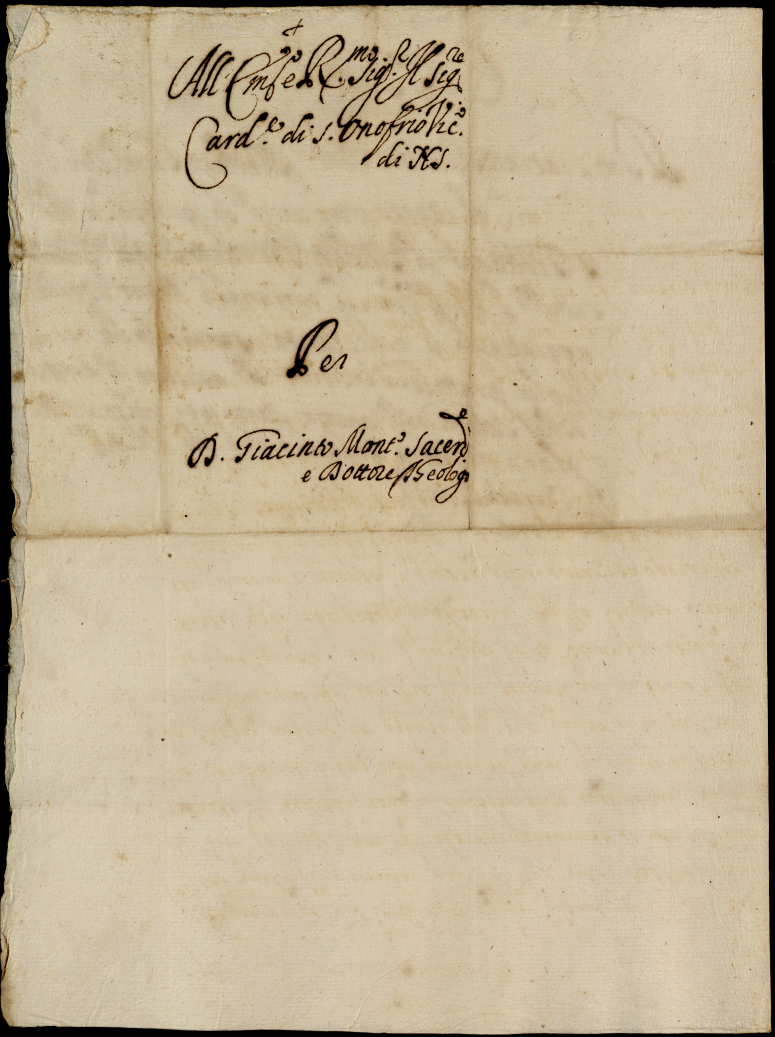 All Em͞o e R.mo Sig.r Il Sig.re
Card.le di S. Onofrio Vic.o
di NS.
Per
D. Giacinto Mont.o Sacerd.e
e Dottore Theologo